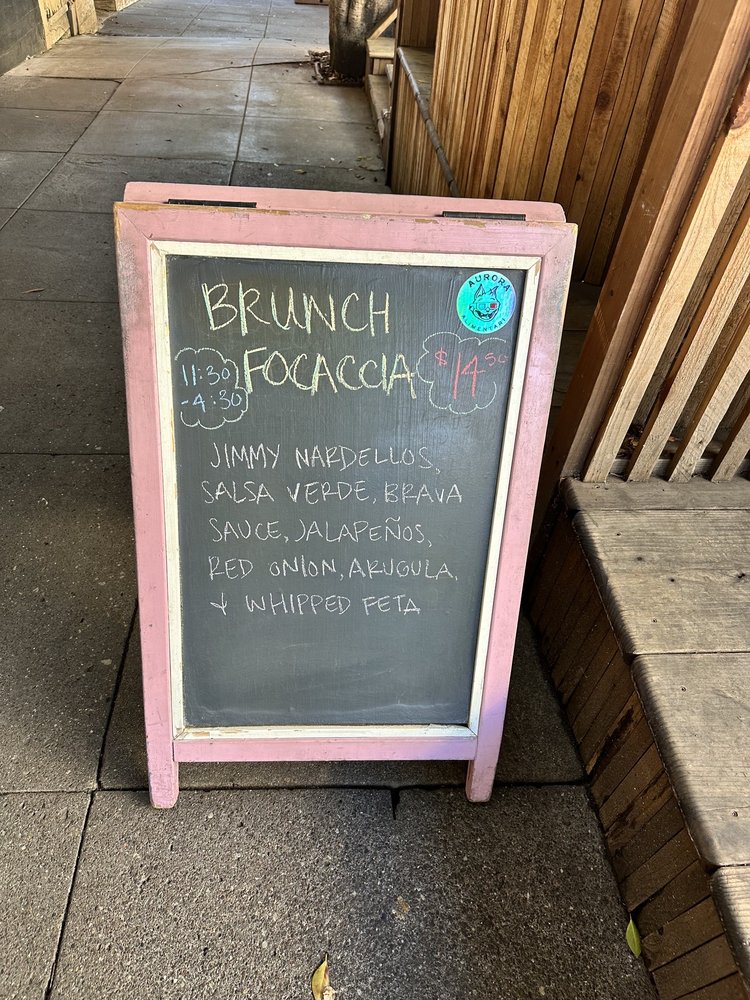 BRUNCH
FOCACCIA
11:30
-4:30
$14.50
AURORA
ALIMENTARI
JIMMY NARDELLOS,
SALSA VERDE, BRAVA
SAUCE, JALAPEÑOS,
RED ONION, ARUGULA,
+ WHIPPED FETA